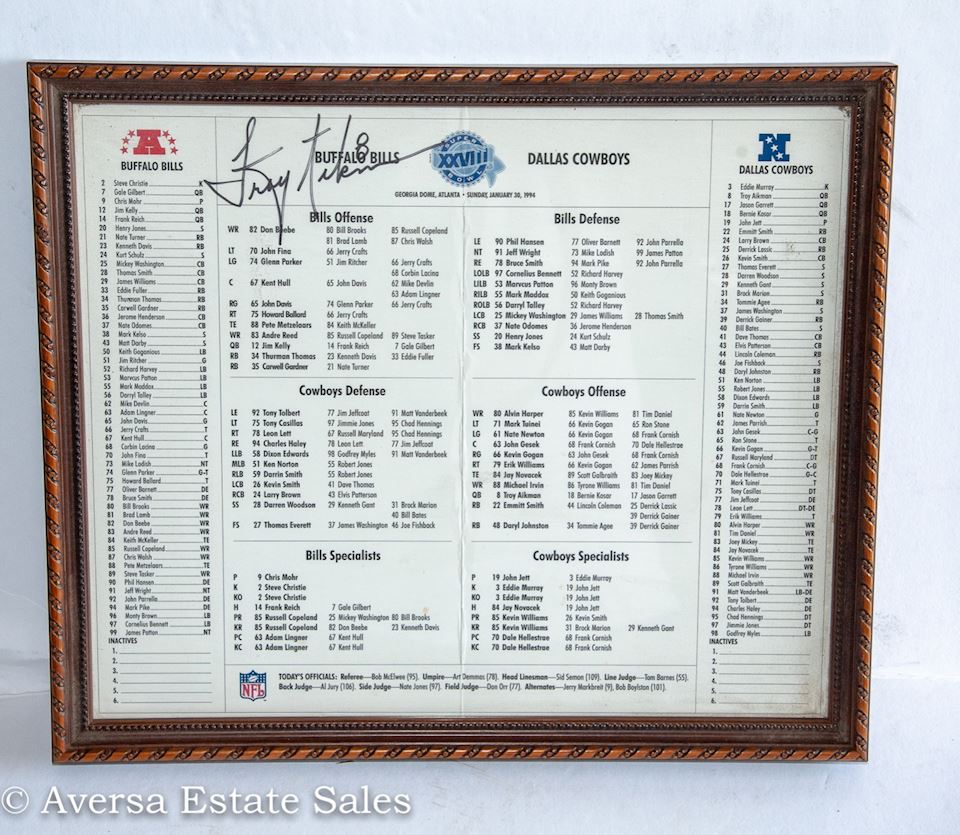 A
BUFFALO BILLS
2 Steve Christie K
7 Gale Gilbert QB
9 Chris Mohr P
12 Jim Kelly QB
14 Frank Reich QB
20 Henry Jones S
21 Nate Turner RB
23 Kenneth Davis RB
24 Kurt Schulz S
25 Mickey Washington CB
28 Thomas Smith CB
29 James Williams CB
33 Eddie Fuller RB
34 Thurman Thomas RB
35 Carwell Gardner RB
36 Jerome Henderson CB
37 Nate Odomes CB
38 Mark Kelso S
43 Matt Darby S
50 Keith Goganious LB
51 Jim Ritcher G
52 Richard Harvey LB
53 Marcus Patton LB
55 Mark Maddox LB
56 Darryl Talley LB
62 Mike Devlin C
63 Adam Lingner C
65 John Davis G
66 Jerry Crafts T
67 Kent Hull C
68 Corbin Lacina G
70 John Fina T
73 Mike Lodish NT
74 Glenn Parker G-T
75 Howard Ballard T
77 Oliver Barnett DE
78 Bruce Smith DE
80 Bill Brooks WR
81 Brad Lamb WR
82 Don Beebe WR
83 Andre Reed WR
84 Keith McKeller TE
85 Russell Copeland WR
87 Chris Walsh WR
88 Pete Metzelaars TE
89 Steve Tasker WR
90 Phil Hansen DE
91 Jeff Wright NT
92 John Parrella DE
94 Mark Pike DE
96 Monty Brown LB
97 Cornelius Bennett LB
99 James Patton NT
INACTIVES
1.
2.
3.
4.
5.
6.
Troy Aikman 8
BUFFALO BILLS
SUPER
XXVIII
BOWL
DALLAS COWBOYS
GEORGIA DOME, ATLANTA • SUNDAY, JANUARY 30, 1994
Bills Offense
WR 82 Don Beebe 80 Bill Brooks 85 Russell Copeland
81 Brad Lamb 87 Chris Walsh
LT 70 John Fina 66 Jerry Crafts
LG 74 Glenn Parker 51 Jim Ritcher 66 Jerry Crafts
68 Corbin Lacina
C 67 Kent Hull 65 John Davis 62 Mike Devlin
63 Adam Lingner
RG 65 John Davis 74 Glenn Parker 66 Jerry Crafts
RT 75 Howard Ballard 66 Jerry Crafts
TE 88 Pete Metzelaars 84 Keith McKeller
WR 83 Andre Reed 85 Russell Copeland 89 Steve Tasker
QB 12 Jim Kelly 14 Frank Reich 7 Gale Gilbert
RB 34 Thurman Thomas 23 Kenneth Davis 33 Eddie Fuller
RB 35 Carwell Gardner 21 Nate Turner
Bills Defense
LE 90 Phil Hansen 77 Oliver Barnett 92 John Parrella
NT 91 Jeff Wright 73 Mike Lodish 99 James Patton
RE 78 Bruce Smith 94 Mark Pike 92 John Parrella
LOLB 97 Cornelius Bennett 52 Richard Harvey
LILB 53 Marcus Patton 96 Monty Brown
RILB 55 Mark Maddox 50 Keith Goganious
ROLB 56 Darryl Talley 52 Richard Harvey
LCB 25 Mickey Washington 29 James Williams 28 Thomas Smith
RCB 37 Nate Odomes 36 Jerome Henderson
SS 20 Henry Jones 24 Kurt Schulz
FS 38 Mark Kelso 43 Matt Darby
Cowboys Defense
LE 92 Tony Tolbert 77 Jim Jeffcoat 91 Matt Vanderbeek
LT 75 Tony Casillas 97 Jimmie Jones 95 Chad Hennings
RT 78 Leon Lett 67 Russell Maryland 95 Chad Hennings
RE 94 Charles Haley 78 Leon Lett 77 Jim Jeffcoat
LLB 58 Dixon Edwards 98 Godfrey Myles 91 Matt Vanderbeek
MLB 51 Ken Norton 55 Robert Jones
RLB 59 Darrin Smith 55 Robert Jones
LCB 26 Kevin Smith 41 Dave Thomas
RCB 24 Larry Brown 43 Elvis Patterson
SS 28 Darren Woodson 29 Kenneth Gant 31 Brock Marion
40 Bill Bates
FS 27 Thomas Everett 37 James Washington 46 Joe Fishback
Cowboys Offense
WR 80 Alvin Harper 85 Kevin Williams 81 Tim Daniel
LT 71 Mark Tuinei 66 Kevin Gogan 65 Ron Stone
LG 61 Nate Newton 66 Kevin Gogan 68 Frank Cornish
C 63 John Gesek 68 Frank Cornish 70 Dale Hellestrae
RG 66 Kevin Gogan 63 John Gesek 68 Frank Cornish
RT 79 Erik Williams 66 Kevin Gogan 62 James Parrish
TE 84 Jay Novacek 89 Scott Galbraith 83 Joey Mickey
WR 88 Michael Irvin 86 Tyrone Williams 81 Tim Daniel
QB 8 Troy Aikman 18 Bernie Kosar 17 Jason Garrett
RB 22 Emmitt Smith 44 Lincoln Coleman 25 Derrick Lassic
39 Derrick Gainer
RB 48 Daryl Johnston 34 Tommie Agee 39 Derrick Gainer
Bills Specialists
P 9 Chris Mohr
K 2 Steve Christie
KO 2 Steve Christie
H 14 Frank Reich 7 Gale Gilbert
PR 85 Russell Copeland 25 Mickey Washington 80 Bill Brooks
KR 85 Russell Copeland 82 Don Beebe 23 Kenneth Davis
PC 63 Adam Lingner 67 Kent Hull
KC 63 Adam Lingner 67 Kent Hull
Cowboys Specialists
P 19 John Jett 3 Eddie Murray
K 3 Eddie Murray 19 John Jett
KO 3 Eddie Murray 19 John Jett
H 84 Jay Novacek 19 John Jett
PR 85 Kevin Williams 26 Kevin Smith
KR 85 Kevin Williams 31 Brock Marion 29 Kenneth Gant
PC 70 Dale Hellestrae 68 Frank Cornish
KC 70 Dale Hellestrae 68 Frank Cornish
NFL
TODAY'S OFFICIALS: Referee—Bob McElwee (95). Umpire—Art Demmas (78). Head Linesman—Sid Semon (109). Line Judge—Tom Barnes (55).
Back Judge—Al Jury (106). Side Judge—Nate Jones (97). Field Judge—Don Orr (77). Alternates—Jerry Markbreit (9), Bob Boylston (101).
N
DALLAS COWBOYS
3 Eddie Murray K
8 Troy Aikman QB
17 Jason Garrett QB
18 Bernie Kosar QB
19 John Jett P
22 Emmitt Smith RB
24 Larry Brown CB
25 Derrick Lassic RB
26 Kevin Smith CB
27 Thomas Everett S
28 Darren Woodson S
29 Kenneth Gant S
31 Brock Marion S
34 Tommie Agee RB
37 James Washington S
39 Derrick Gainer RB
40 Bill Bates S
41 Dave Thomas CB
43 Elvis Patterson CB
44 Lincoln Coleman RB
46 Joe Fishback S
48 Daryl Johnston RB
51 Ken Norton LB
55 Robert Jones LB
58 Dixon Edwards LB
59 Darrin Smith LB
61 Nate Newton G
62 James Parrish T
63 John Gesek C-G
65 Ron Stone T
66 Kevin Gogan G-T
67 Russell Maryland DT
68 Frank Cornish C-G
70 Dale Hellestrae G-C
71 Mark Tuinei T
75 Tony Casillas DT
77 Jim Jeffcoat DE
78 Leon Lett DT-DE
79 Erik Williams T
80 Alvin Harper WR
81 Tim Daniel WR
83 Joey Mickey TE
84 Jay Novacek TE
85 Kevin Williams WR
86 Tyrone Williams WR
88 Michael Irvin WR
89 Scott Galbraith TE
91 Matt Vanderbeek LB-DE
92 Tony Tolbert DE
94 Charles Haley DE
95 Chad Hennings DT
97 Jimmie Jones DT
98 Godfrey Myles LB
INACTIVES
1.
2.
3.
4.
5.
6.
© Aversa Estate Sales